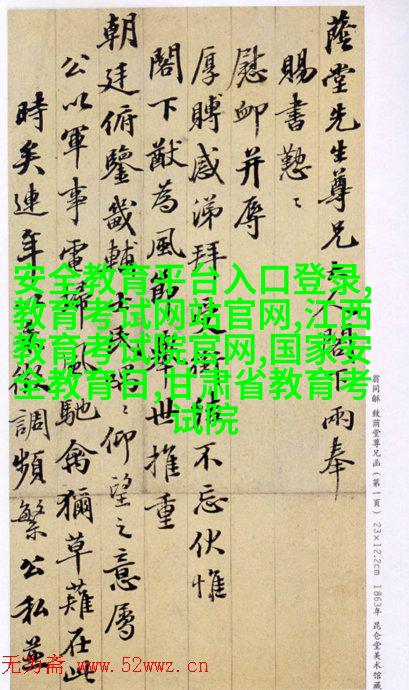 蔭堂先生尊兄大人閣下兩奉
賜書懃〻
慰卹并辱
厚賻感涕拜銜結不忘伏惟
閣下猷為風節舉世推重
朝廷俯鑒畿輔士民喁〻仰望之意屬
公以軍事電掃風馳禽獮草薙在此
時矣連年徵調頻繁公私並
安全教育平台入口登录,
教育考试网站官网,江西
教育考试院官网,国家安
全教育日,甘肃省教育考
试院
翁同龢 致荫堂尊兄函（第一頁） 23×12.2cm 1863年 昆仑堂美术馆藏
无为斋 www.52wwz.cn